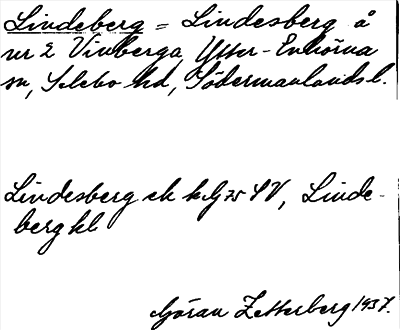 Lindeberg = Lindesberg å
nr 2 Vinberga, Ytter-Enhörna
sn, Selebo hd, Södermanlands l.
Lindesberg ek k. G 75 SV, Linde-
berg kl
Göran Zetterberg 1937.